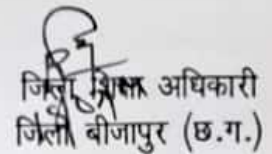 जिला शिक्षा अधिकारी
जिला बीजापुर (छ.ग.)